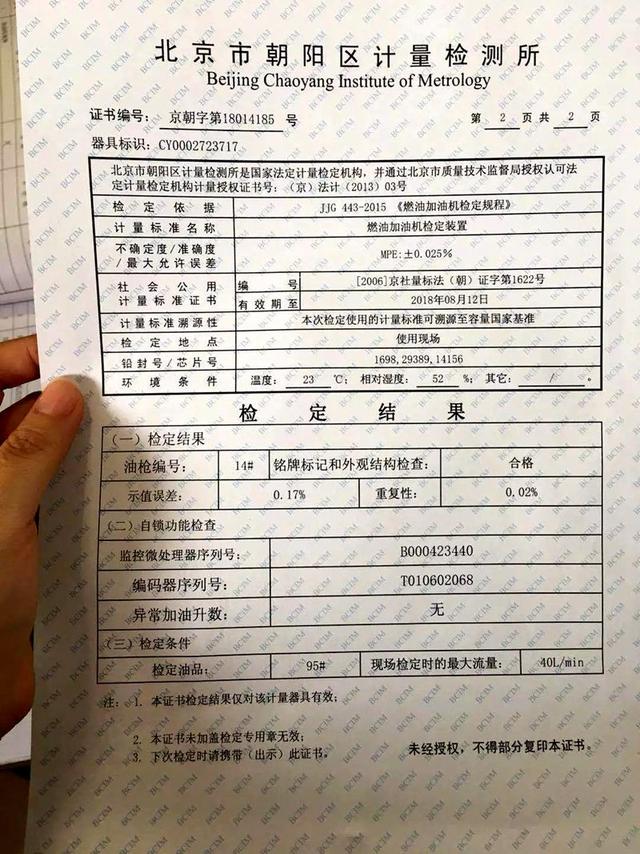 北京市朝阳区计量检测所
Beijing Chaoyang Institute of Metrology
证书编号： 京朝字第18014185 号 第 2 页 共 2 页
器具标识：CY0002723717
北京市朝阳区计量检测所是国家法定计量检定机构，并通过北京市质量技术监督局授权认可法
定计量检定机构计量授权证书号：（京）法计（2013）03号
检定依据 JJG 443-2015 《燃油加油机检定规程》
计量标准名称 燃油加油机检定装置
不确定度/准确度
/最大允许误差 MPE:±0.025%
社会公用
计量标准证书 编号 [2006]京社量标法（朝）证字第1622号
有效期至 2018年08月12日
计量标准溯源性 本次检定使用的计量标准可溯源至容量国家基准
检定地点 使用现场
铅封号/芯片号 1698,29389,14156
环境条件 温度： 23 ℃； 相对湿度： 52 %；其它： / 。
检定结果
（一）检定结果
油枪编号： 14# 铭牌标记和外观结构检查： 合格
示值误差： 0.17% 重复性： 0.02%
（二）自锁功能检查
监控微处理器序列号： B000423440
编码器序列号： T010602068
异常加油升数： 无
（三）检定条件
检定油品： 95# 现场检定时的最大流量： 40L/min
注：1. 本证书检定结果仅对该计量器具有效；
2. 本证书未加盖检定专用章无效；
3. 下次检定时请携带（出示）此证书。 未经授权，不得部分复印本证书。